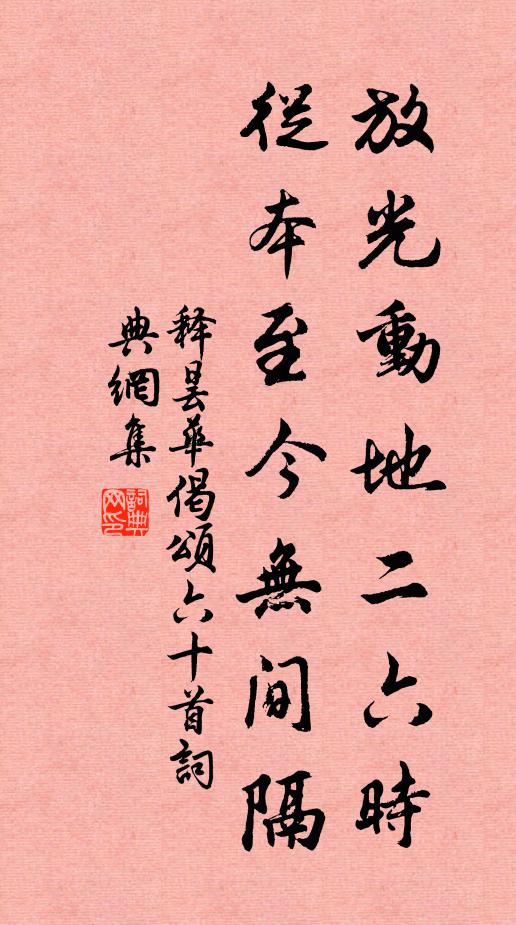 放光動地二六時
從本至今無间隔
释曇華偈頌六十首詞
典網集
詞典網印